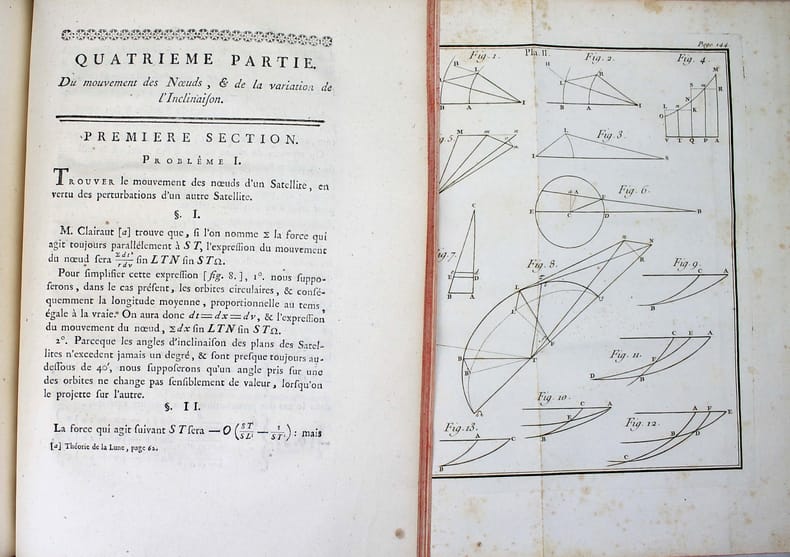 QUATRIEME PARTIE.
Du mouvement des Nœuds, & de la variation de
l'Inclinaiſon.
PREMIERE SECTION.
PROBLÊME I.
TROUVER le mouvement des nœuds d'un Satellite, en
vertu des perturbations d'un autre Satellite.
§. I.
M. Clairaut [a] trouve que, ſi l'on nomme Σ la force qui
agit toujours parallélement à ST, l'expreſſion du mouvement
du nœud ſera Σdt²/rdv ſin LTN ſin STΩ.
Pour ſimplifier cette expreſſion [fig. 8.], 1°. nous ſuppo-
ſerons, dans le cas préſent, les orbites circulaires, & conſé-
quemment la longitude moyenne, proportionnelle au tems,
égale à la vraie. On aura donc dt=dx=dv, & l'expreſſion
du mouvement du nœud, Σdx ſin LTN ſin STΩ.
2°. Parceque les angles d'inclinaiſon des plans des Satel-
lites n'excedent jamais un degré, & ſont preſque toujours au-
deſſous de 40′, nous ſuppoſerons qu'un angle pris ſur une
des orbites ne change pas ſenſiblement de valeur, lorſqu'on
le projette ſur l'autre.
§. II.
La force qui agit ſuivant ST ſera —O(ST/SL³ — 1/ST²): mais
[a] Théorie de la Lune, page 62.
Page 144
Pla. II.
Fig. 1.
Fig. 2.
Fig. 4.
Fig. 3.
g. 5.
Fig. 6.
ig. 7.
Fig. 8.
Fig. 9.
Fig. 11.
Fig. 10.
Fig. 12.
Fig. 13.